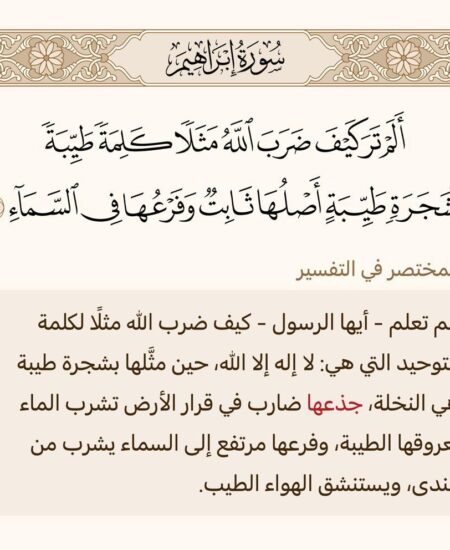 سُورَةُ إِبْرَاهِيمَ
أَلَمْ تَرَ كَيْفَ ضَرَبَ ٱللَّهُ مَثَلًا كَلِمَةً طَيِّبَةً
شَجَرَةٍ طَيِّبَةٍ أَصْلُهَا ثَابِتٌ وَفَرْعُهَا فِي ٱلسَّمَآءِ
لمختصر في التفسير
لم تعلم - أيها الرسول - كيف ضرب الله مثلًا لكلمة
لتوحيد التي هي: لا إله إلا الله، حين مثَّلها بشجرة طيبة
هي النخلة، جذعها ضارب في قرار الأرض تشرب الماء
عروقها الطيبة، وفرعها مرتفع إلى السماء يشرب من
لندى، ويستنشق الهواء الطيب.